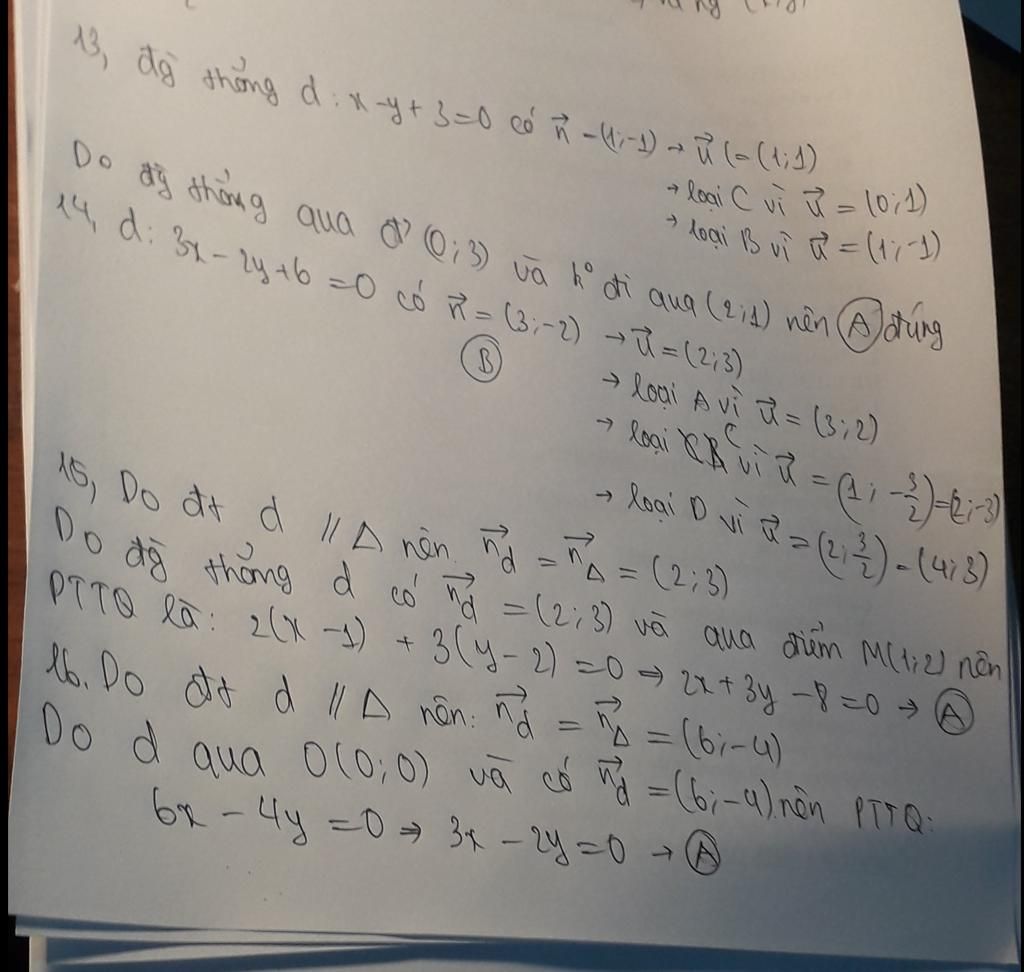 13, đg̀ thẳng d: x-y+3=0 có n⃗ -(1;-1) → u⃗ (=(1;1)
→ loại C vì u⃗ = (0;1)
→ loại B vì u⃗ = (1;-1)
Do đg̀ thẳng qua đ' (0;3) và kº đi qua (2;1) nên Ⓐ đúng
14, d: 3x-2y+6=0 có n⃗ = (3;-2) → u⃗ = (2;3)
Ⓑ
→ loại A vì u⃗ = (3;2)
→ loại C vì u⃗ = (1; -3/2)=(2;-3)
→ loại D vì u⃗ = (2; 3/2) = (4;3)
15, Do đt d // Δ nên n⃗d = n⃗Δ = (2;3)
Do đg̀ thẳng d có n⃗d = (2;3) và qua điểm M(1;2) nên
PTTQ là: 2(x-1) + 3(y-2) =0 ⇒ 2x+3y-8=0 → Ⓐ
16. Do đt d // Δ nên: n⃗d = n⃗Δ = (6;-4)
Do d qua O(0;0) và có n⃗d = (6;-4) nên PTTQ:
6x - 4y =0 ⇒ 3x-2y=0 → Ⓐ